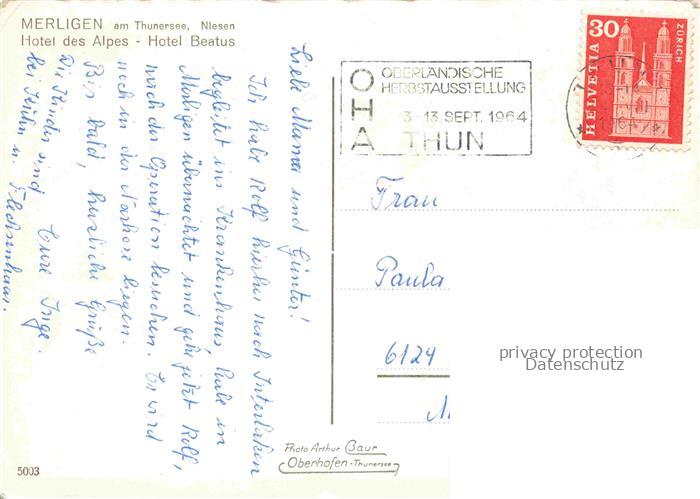 MERLIGEN am Thunersee, Niesen
Hotel des Alpes - Hotel Beatus
Liebe Mama und Günter!
Ich habe Rolf hierher nach Interlaken
begleitet ins Krankenhaus, habe in
Merligen übernachtet und gehe jetzt Rolf,
nach der Operation besuchen. Er wird
noch in der Narkose liegen.
Bis bald, herzliche Grüße
Eure Inge.
Die Kinder sind
bei Kühn u. Flechsenhaar.
5003
OHA
OBERLÄNDISCHE
HERBSTAUSSTELLUNG
3-13. SEPT. 1964
THUN
30
HELVETIA
ZÜRICH
Frau
Paula
6124
privacy protection
Datenschutz
Photo Arthur Baur
Oberhofen-Thunersee